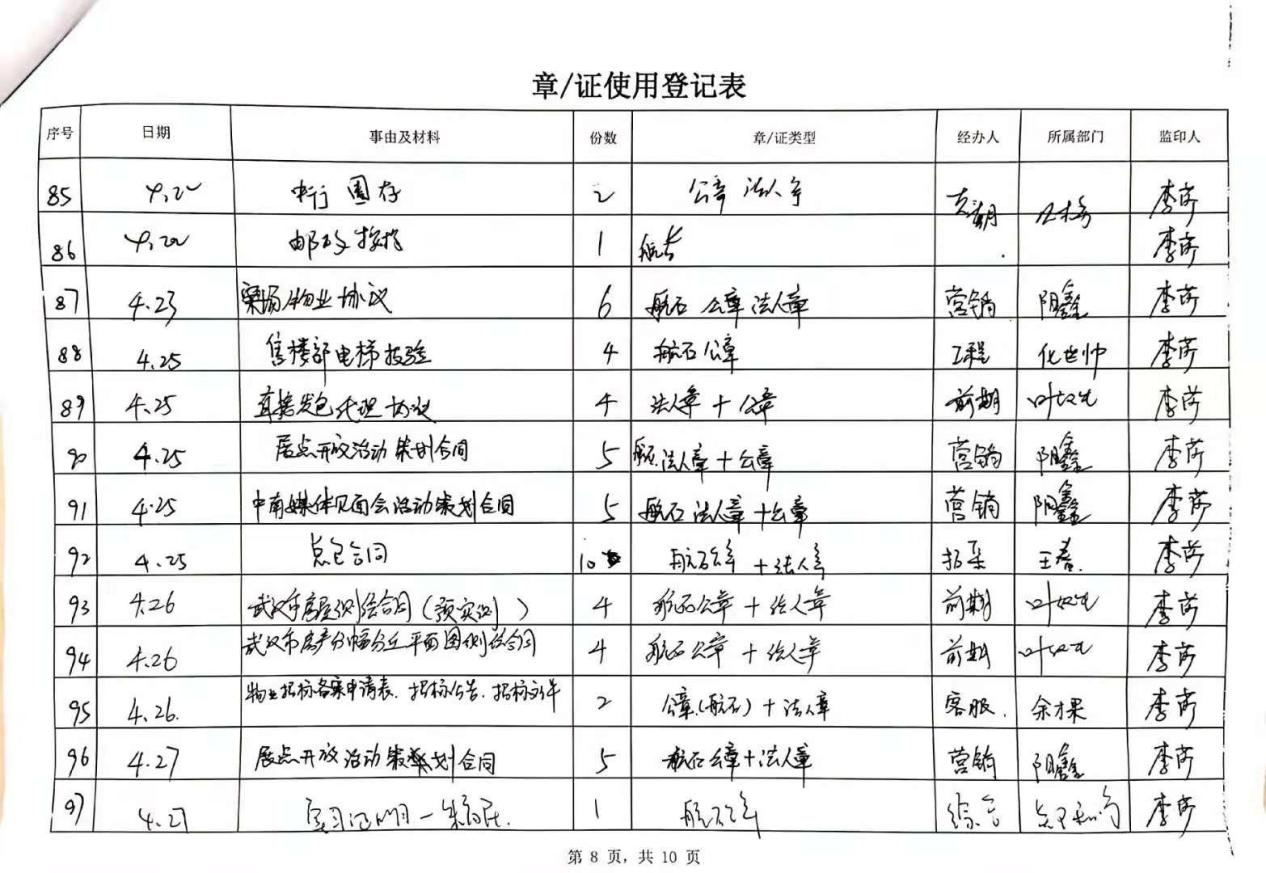 章/证使用登记表
序号 日期 事由及材料 份数 章/证类型 经办人 所属部门 监印人
85 4.22 中行 2 公章 法人章 李芮
86 4.22 邮政 1 李芮
87 4.23 案场物业协议 6 航石 公章 法人章 营销 阳鑫 李芮
88 4.25 售楼部电梯检验 4 航石公章 工程 化世帅 李芮
89 4.25 直接发包代理协议 4 法人章+公章 前期 李芮
90 4.25 展点开放活动策划合同 5 航石法人章+公章 营销 阳鑫 李芮
91 4.25 中南媒体见面会活动策划合同 5 航石法人章+公章 营销 阳鑫 李芮
92 4.25 总包合同 10 航石公章+法人章 招采 王春 李芮
93 4.26 武汉市房屋测绘合同(预实测) 4 航石公章+法人章 前期 李芮
94 4.26 武汉市房产分幅分丘平面图测绘合同 4 航石公章+法人章 前期 李芮
95 4.26. 物业招标备案申请表、招标公告、招标文件 2 公章(航石)+法人章 客服. 余才果 李芮
96 4.27 展点开放活动策划合同 5 航石公章+法人章 营销 阳鑫 李芮
97 4.27 实习证明一 1 航石公章 综合 李芮
第 8 页, 共 10 页